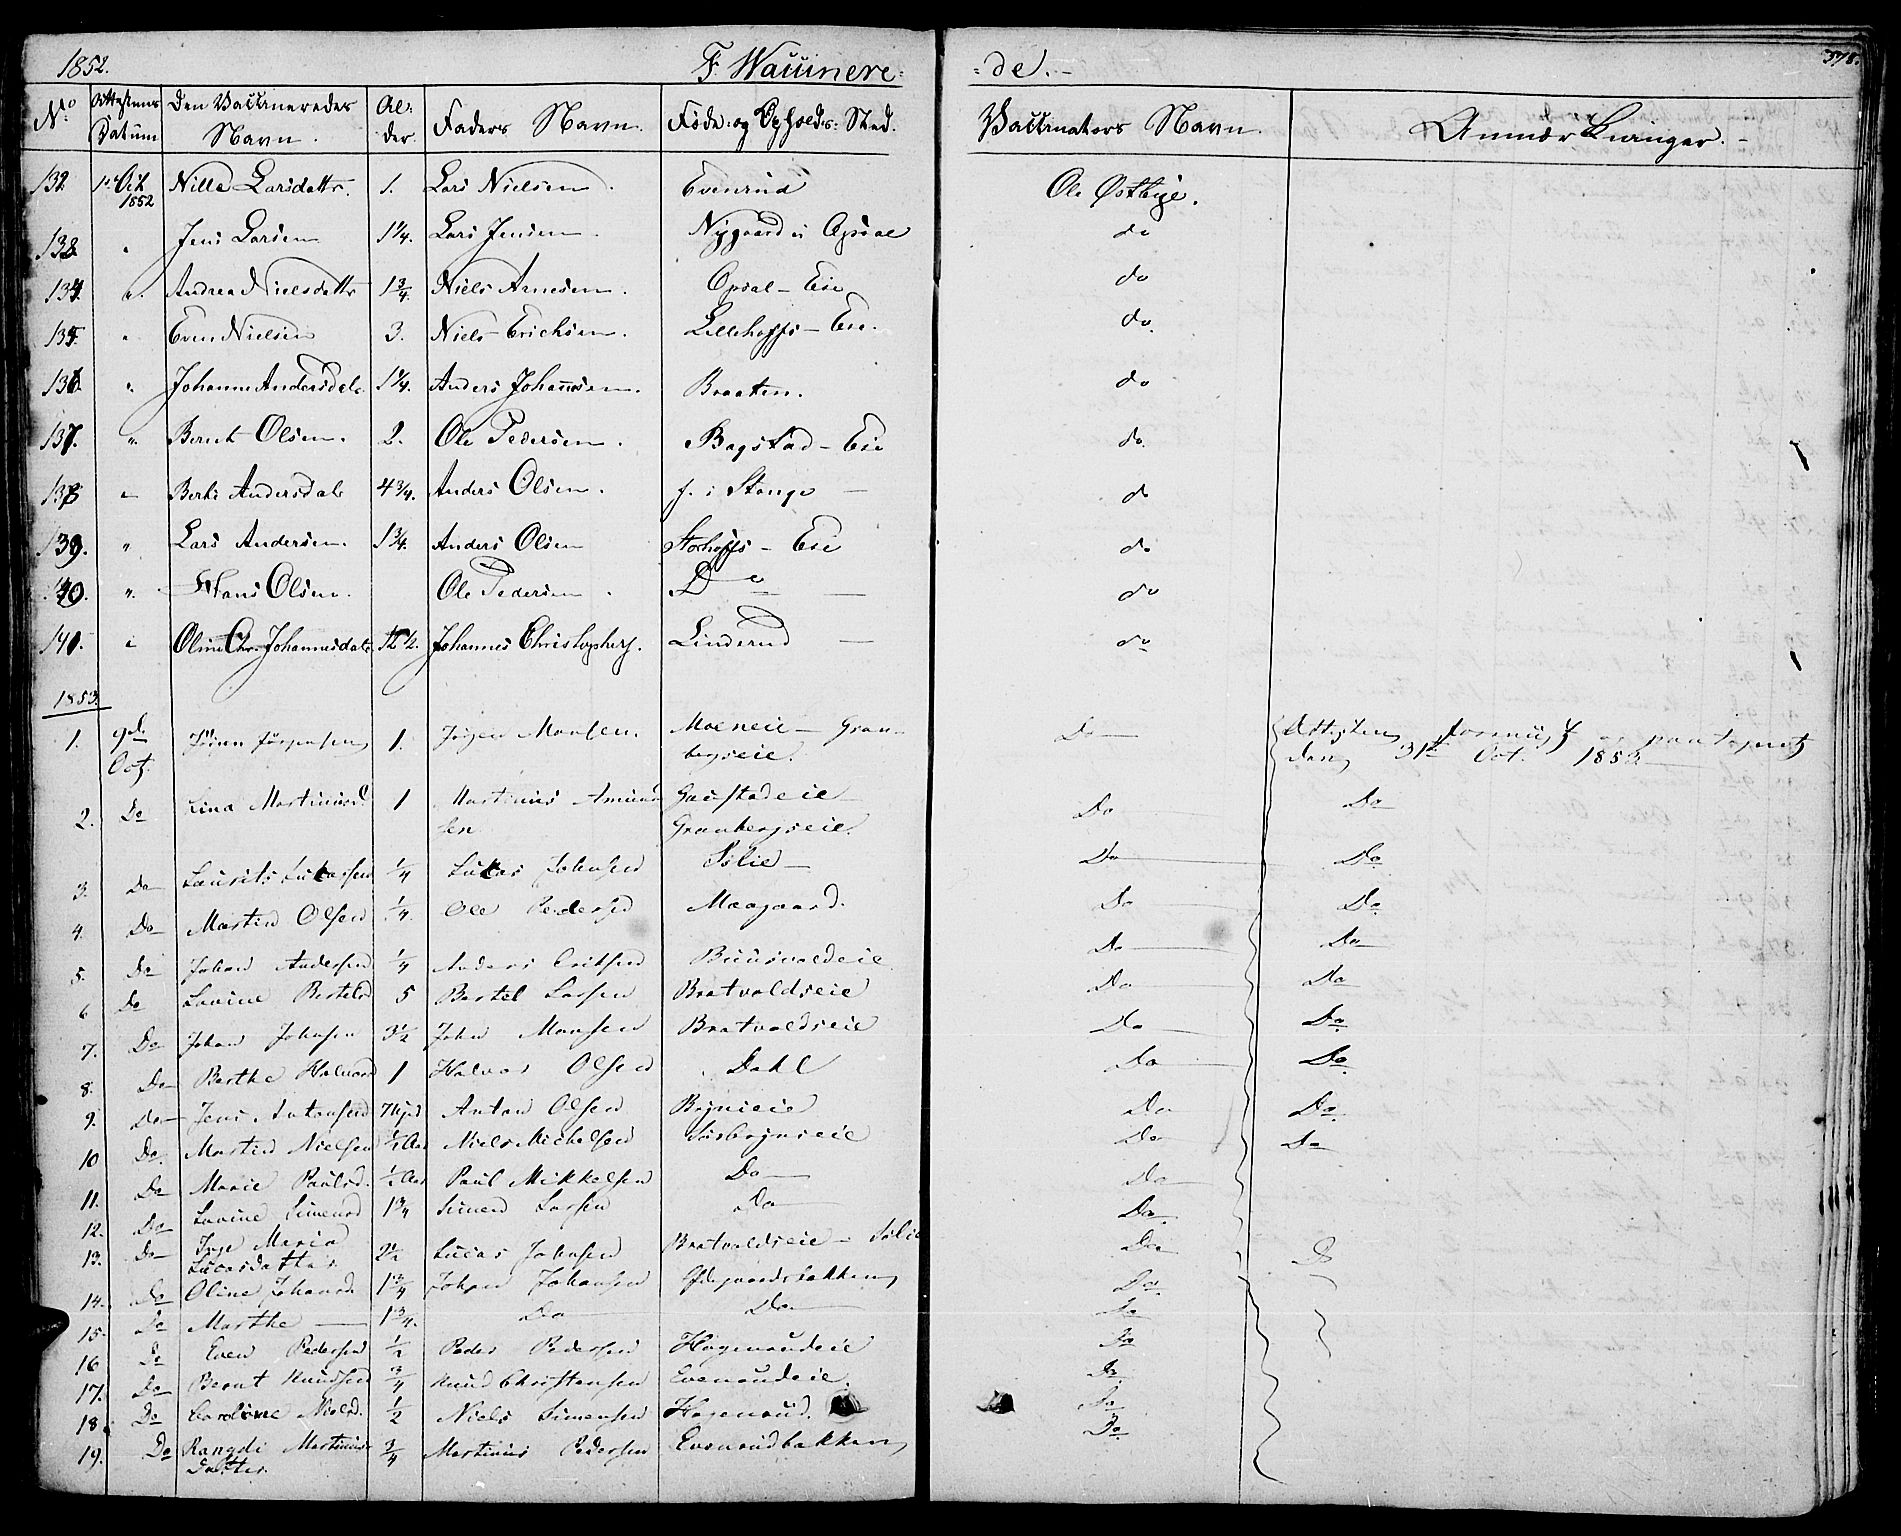 1852. F. Waccinere= =de. - 378.
No Attestens Datum Den Vaccineredes Navn. Al: der. Faders Navn. Føde: og Opholds: Sted. Vaccinators Navn. Anmærkninger. -
132. 1ste Oct 1852 Nille Larsdattr. 1. Lars Nielsen. Evenrud Ole Østbye.
133 " Jens Larsen 1 1/4. Lars Jensen. Nygaard u Opsal do
134. " Andrea Nielsdattr 1 3/4. Niels Arnesen. Opsal - Eie do
135. " Even Nielsen 3. Niels Erichsen. Lillehoffs - Eie. do.
136. " Johanne Andersdatr 1 1/4. Anders Johannsen. Braaten. do
137. " Bernt Olsen. 2. Ole Pedersen. Bagstad - Eie do.
138 " Berthe Andersdatr 4 3/4. Anders Olsen. f. i Stange — do
139. " Lars Andersen. 1 3/4. Anders Olsen Storhoffs - Eie do
140. " Hans Olsen. Ole Pedersen. Do — do
141. " Oline Chr. Johannesdatr 1/2. Johannes Christophers. Linderud — do
1853.
1. 9de Oct. Jörgen Jörgensen 1. Jörgen Monsen. Moeneie - Gran- Do — Attesten
bergseie. den 31te Oct. 1853
2. Do Lina Martinusd 1 Martinus Amund Gaustadeie Do Do
sen Granbergseie.
3. Do Laurits Lukassen 1/4 Lukas Johnsen Sölie — Do Do
4. Do Martin Olsen 1/4. Ole Pedersen Moegaard. Do Do
5. Do Johan Andersen 1/4 Anders Eriksen Buusvoldeie Do Do
6 Do Lovine Bertelsd 5 Bertel Larsen Bratvoldseie Do Do
7. Do Johan Johnsen 3 1/2 John Monsen Bratvoldseie Do Do
8. Do Berthe Halvord 1 Halvor Olsen Dahl Do Do
9. Do Jens Antonsen 7 Anton Olsen Do Do
10 Do. Martin Nielsen 1/2 Aar Niels Michelsen Do Do
11. Do Marie Paulsd. 1/2 Aar Paul Mikkelsen Do — Do
12. Do Lovine Simensd 1 3/4 Simen Larsen Do Do
13. Do Inge Maria 2 1/2 Lucas Johnsen Bratvoldseie - Sölie Do
Lucasdatter
14. Do Oline Johansd. 1 3/4 Johan Johansen Do
15. Do Marthe — 1 3/4. Do Do Do
16 Do Even Pedersen 1/2 Peder Pedersen Hagenrudeie Do
17. Do Bernt Knudsen 3/4 Knud Christensen Evenrudeie. Do
18. Do Caroline Nielsd. 1/2 Niels Simensen Hagenrud. Do
19. Do Rangdi Martinus 3/4 Martinus Pedersen Evenrudbakken Do
Datter.